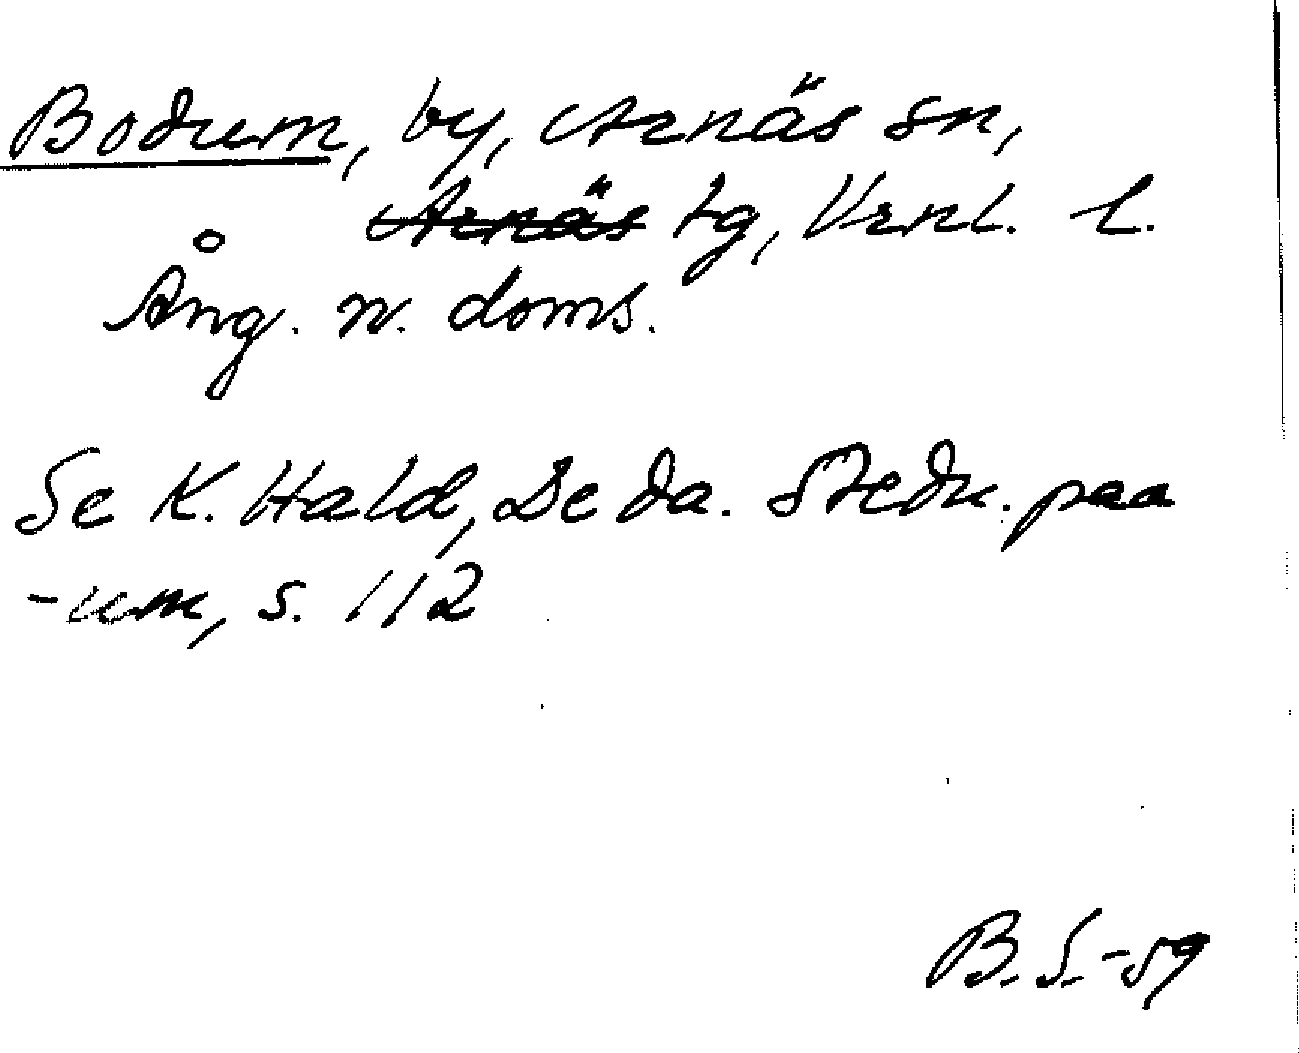 Bodum, by, Arnäs sn,
Arnäs tg, Vrnl. l.
Ång. n. doms.
Se K. Hald, De da. Stedn. paa
-um, s. 112
B. S. -59